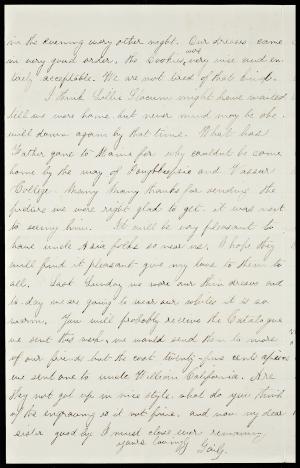 in the evening every other night. Our dresses came
in very good order, the Cookies, were very nice and en-
tirely acceptable. We are not tired of that kind.
I think Lottie Slocum might have waited
till we were home, but never mind may be she
will down again by that time. What has
Father gone to Maine for, why couldnt he come
home by the way of Poughkeepsie and Vassar
College. Many many thanks for sending the
picture we were right glad to get. it was next
to seeing him. It will be very pleasant to
have uncle Asia folks so near us. I hope they
will find it pleasant - give my love to them to
all. Last Sunday we wore our thin dresses and
to-day we are going to wear our whites it is so
warm. You will probably receive the Catalogue
we sent this week, we would send them to more
of our friends but the cost twenty-five cents apiece
we sent one to uncle William California. Are
they not got up in nice style. what do you think
of the engraving is it not fine. and now my dear
sister good by I must close ever remaining
yours lovingly